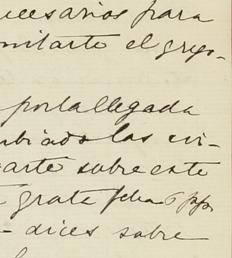 cesarios para
mitarte el grego-
por la llegada
mbiado las vi-
arte sobre este
grata fecha 6 ppo
- dices sobre